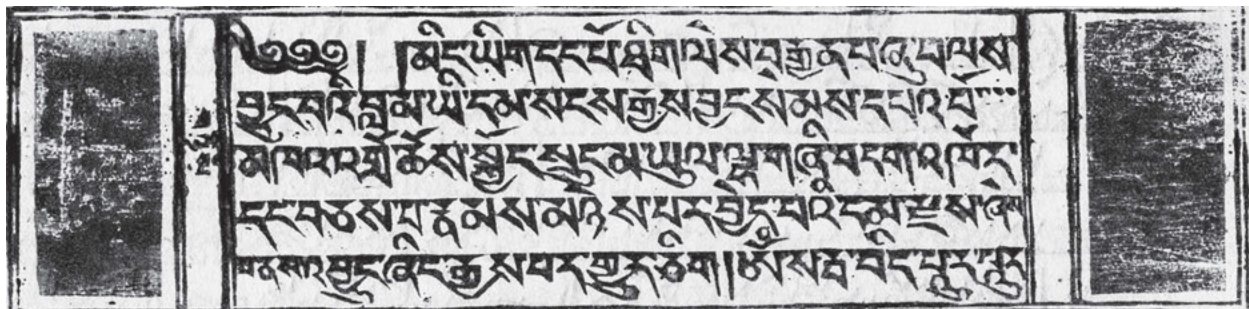 ༄༅༅། །མིང་ཡིག་དང་པོ་ཐིག་ལེས་བརྒྱན་པ་ཞུ་བ་ལས
བྱུང་བའི་བླ་མ་ཡི་དམ་སངས་རྒྱས་བྱང་སེམས་དཔའ་བོ
མཁའ་འགྲོ་ཆོས་སྐྱོང་སྲུང་མ་ཡུལ་ལྷ་གཞི་བདག་འཁོར
དང་བཅས་པ་རྣམས་མཉེས་པར་བྱེད་པའི་དམ་རྫས་
བྱུང་ཞིང་རྒྱས་པར་གྱུར་ཅིག །ཨོཾ་སརྦ་བིད་པུར་པུར